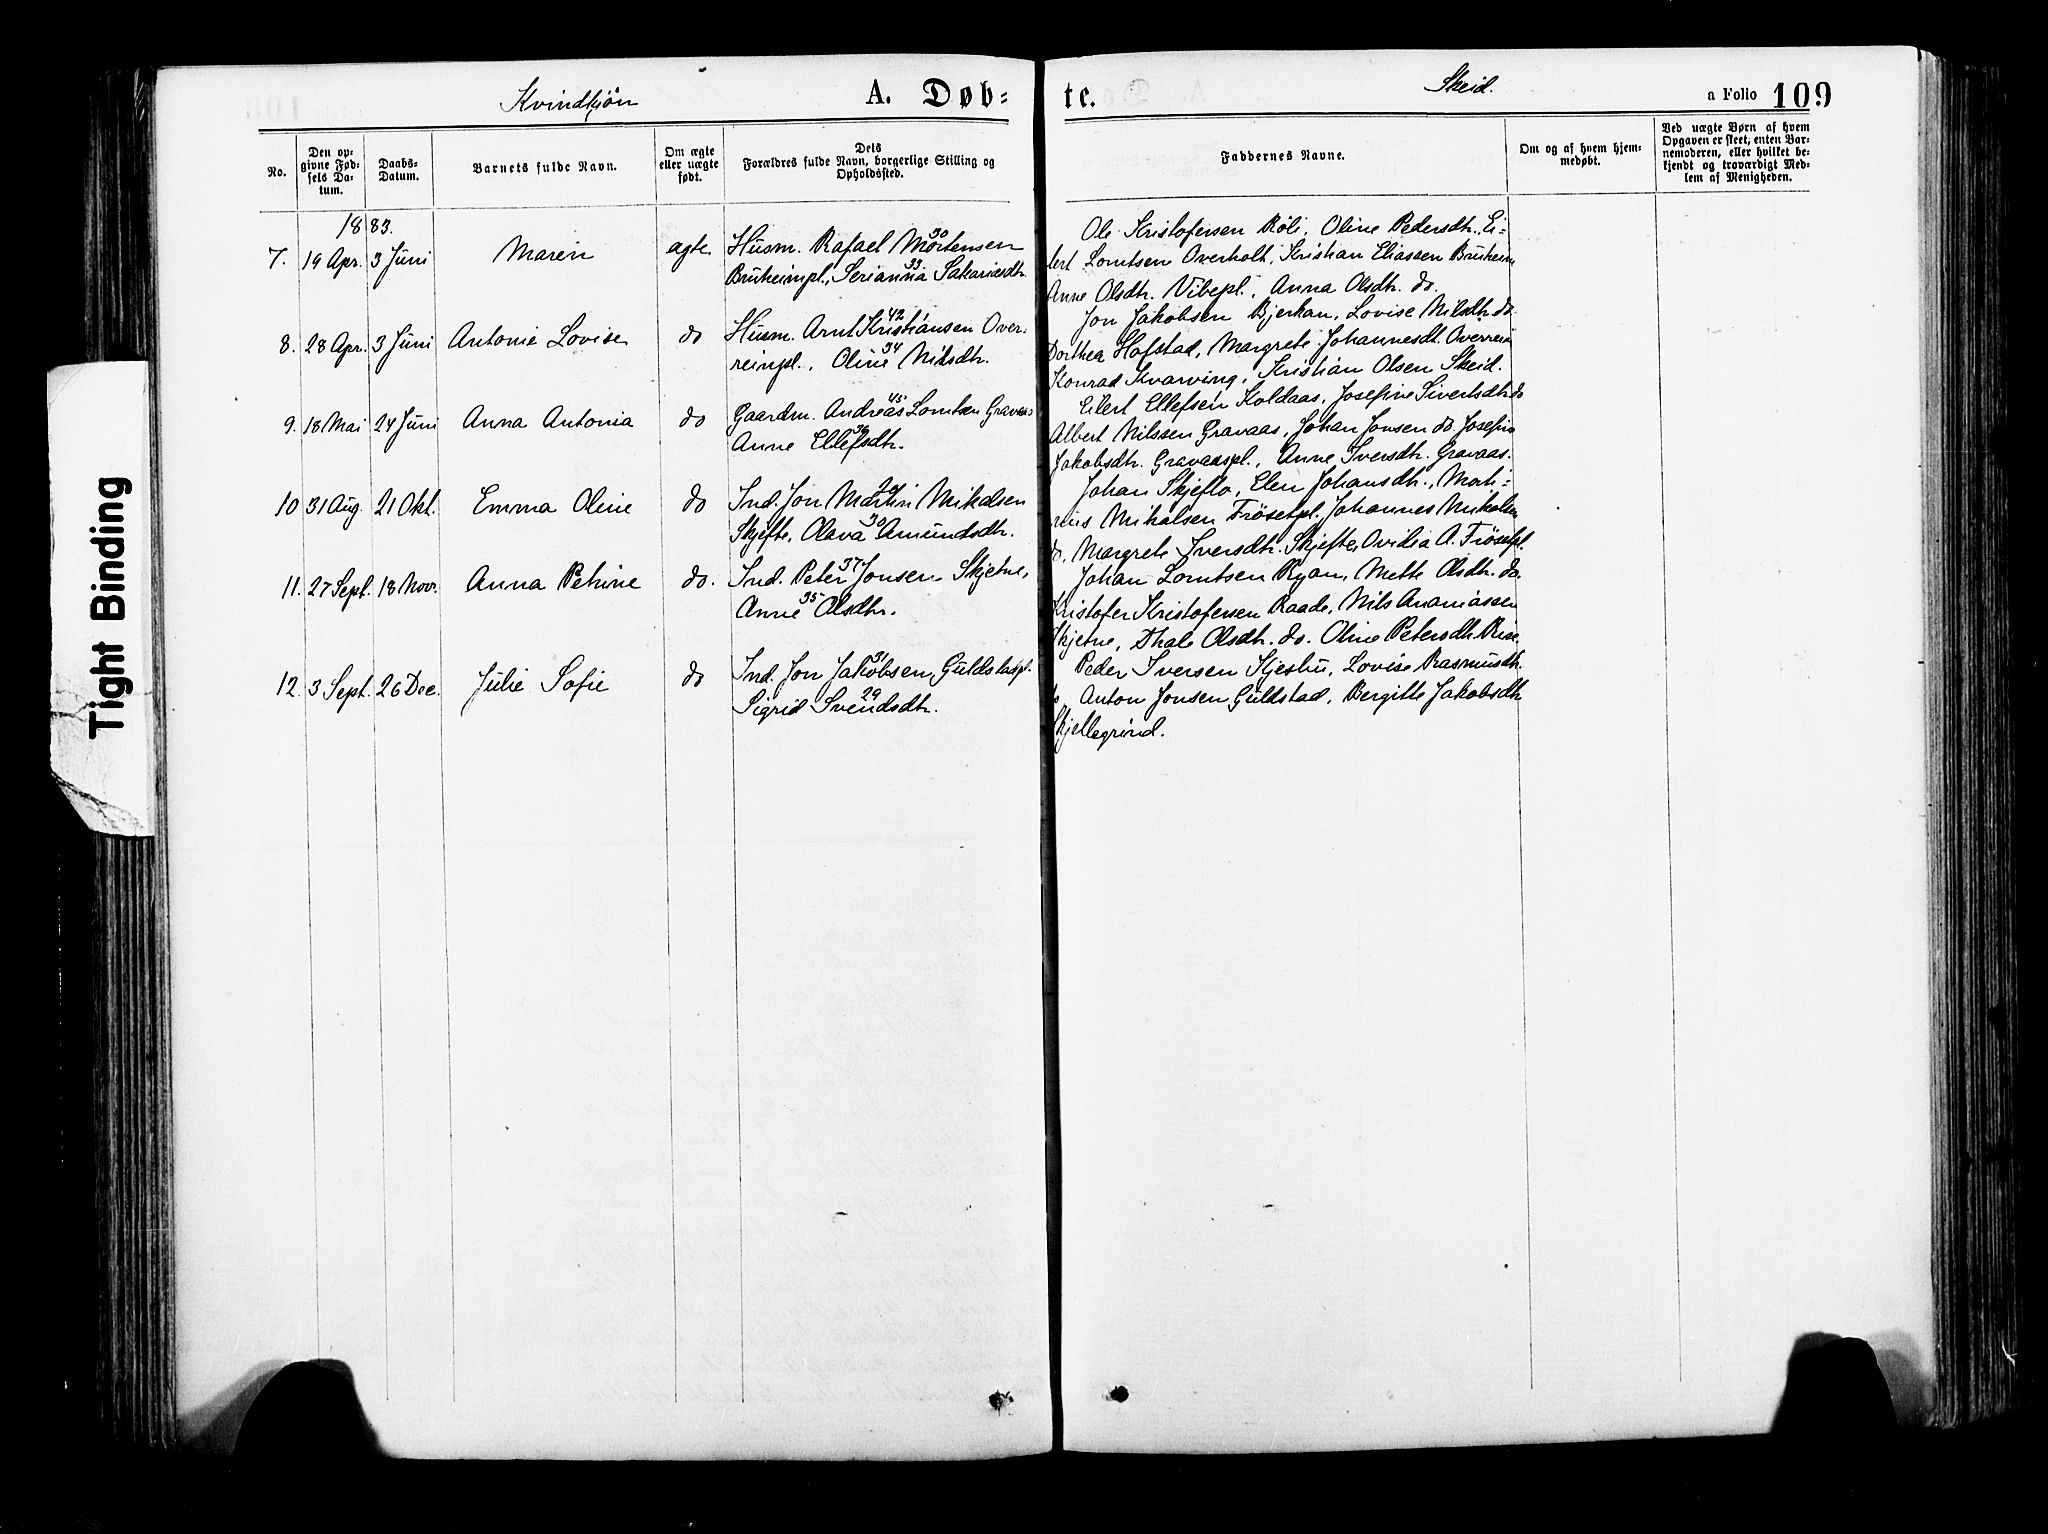 Kvindkjön
A. Døb=
te.
Skeid.
a Folio 109
No.
Den op-
givne Fød-
sels Da-
tum.
Daabs-
Datum.
Barnets fulde Navn.
Om ægte
eller uægte
født.
Dets
Forældres fulde Navn, borgerlige Stilling og
Opholdssted.
Faddernes Navne.
Om og af hvem hjem-
medøbt.
Ved uægte Børn af hvem
Opgaven er skeet, enten Bar-
nemoderen, eller hvilket be-
kjendt og troværdigt Med-
lem af Menigheden.
1883.
7. 19 Apr. 3 Juni Maren ægte Husm. Rafael Mortensen 30
Bruheimpl., Serianna 33 Sakariasdtr.
Ole Kristofersen Röli, Oline Pedersdtr., Ei-
lert Lorntsen Overholt, Kristian Eliassen Bruheim
Anne Olsdtr. Vibepl., Anna Olsdtr. do.
8. 28 Apr. 3 Juni Antonie Lovise do Husm. Arnt Kristiansen 42 Over-
reinpl., Oline 34 Nilsdtr.
Jon Jakobsen Bjerkan, Lovise Nilsdtr. do
Dorthea Hofstad, Margrete Johannesdt. Overrein
Konrad Kvarving, Kristian Olsen Skeid.
9. 18 Mai 24 Juni Anna Antonia do Gaardm. Andreas 45 Lorntsen Gravaas
Anne Ellefsdtr. 36
Eilert Ellefsen Koldaas, Josefine Sivertsdtr. do
Albert Nilssen Gravaas, Johan Jonsen do. Josefine
Jakobsdtr. Gravaaspl., Anne Iversdtr. Gravaas.
10 31 Aug. 21 Okt. Emma Oline do Ind. Jon Martin Mikalsen
Skjefte, Olava 30 Amundsdtr.
Johan Skjeflo, Elen Johansdtr., Mart-
nus Mikalsen Frösetpl. Johannes Mikalsen
do. Margrete Iversdtr. Skjefte, Ovidia A. Frösetpl.
11. 27 Sept. 18 Nov. Anna Petrine do. Ind. Peter 37 Jonsen Skjetne,
Anne 35 Olsdtr.
Johan Lorntsen Ryan, Mette Olsdtr. do.
Kristofer Kristofersen Raade, Nils Ananiassen
Skjetne, Thale Olsdtr. do. Oline Petersdtr. Rise.
12. 3 Sept. 26 Dec. Julie Sofie do Ind. Jon Jakobsen 31 Guldstadpl.
Sigrid Svendsdtr. 29
Peder Iversen Stjesbu, Lovise Rasmusdtr.
do Anton Jonsen Guldstad, Bergitte Jakobsdtr.
Skjellegrind.
Tight Binding